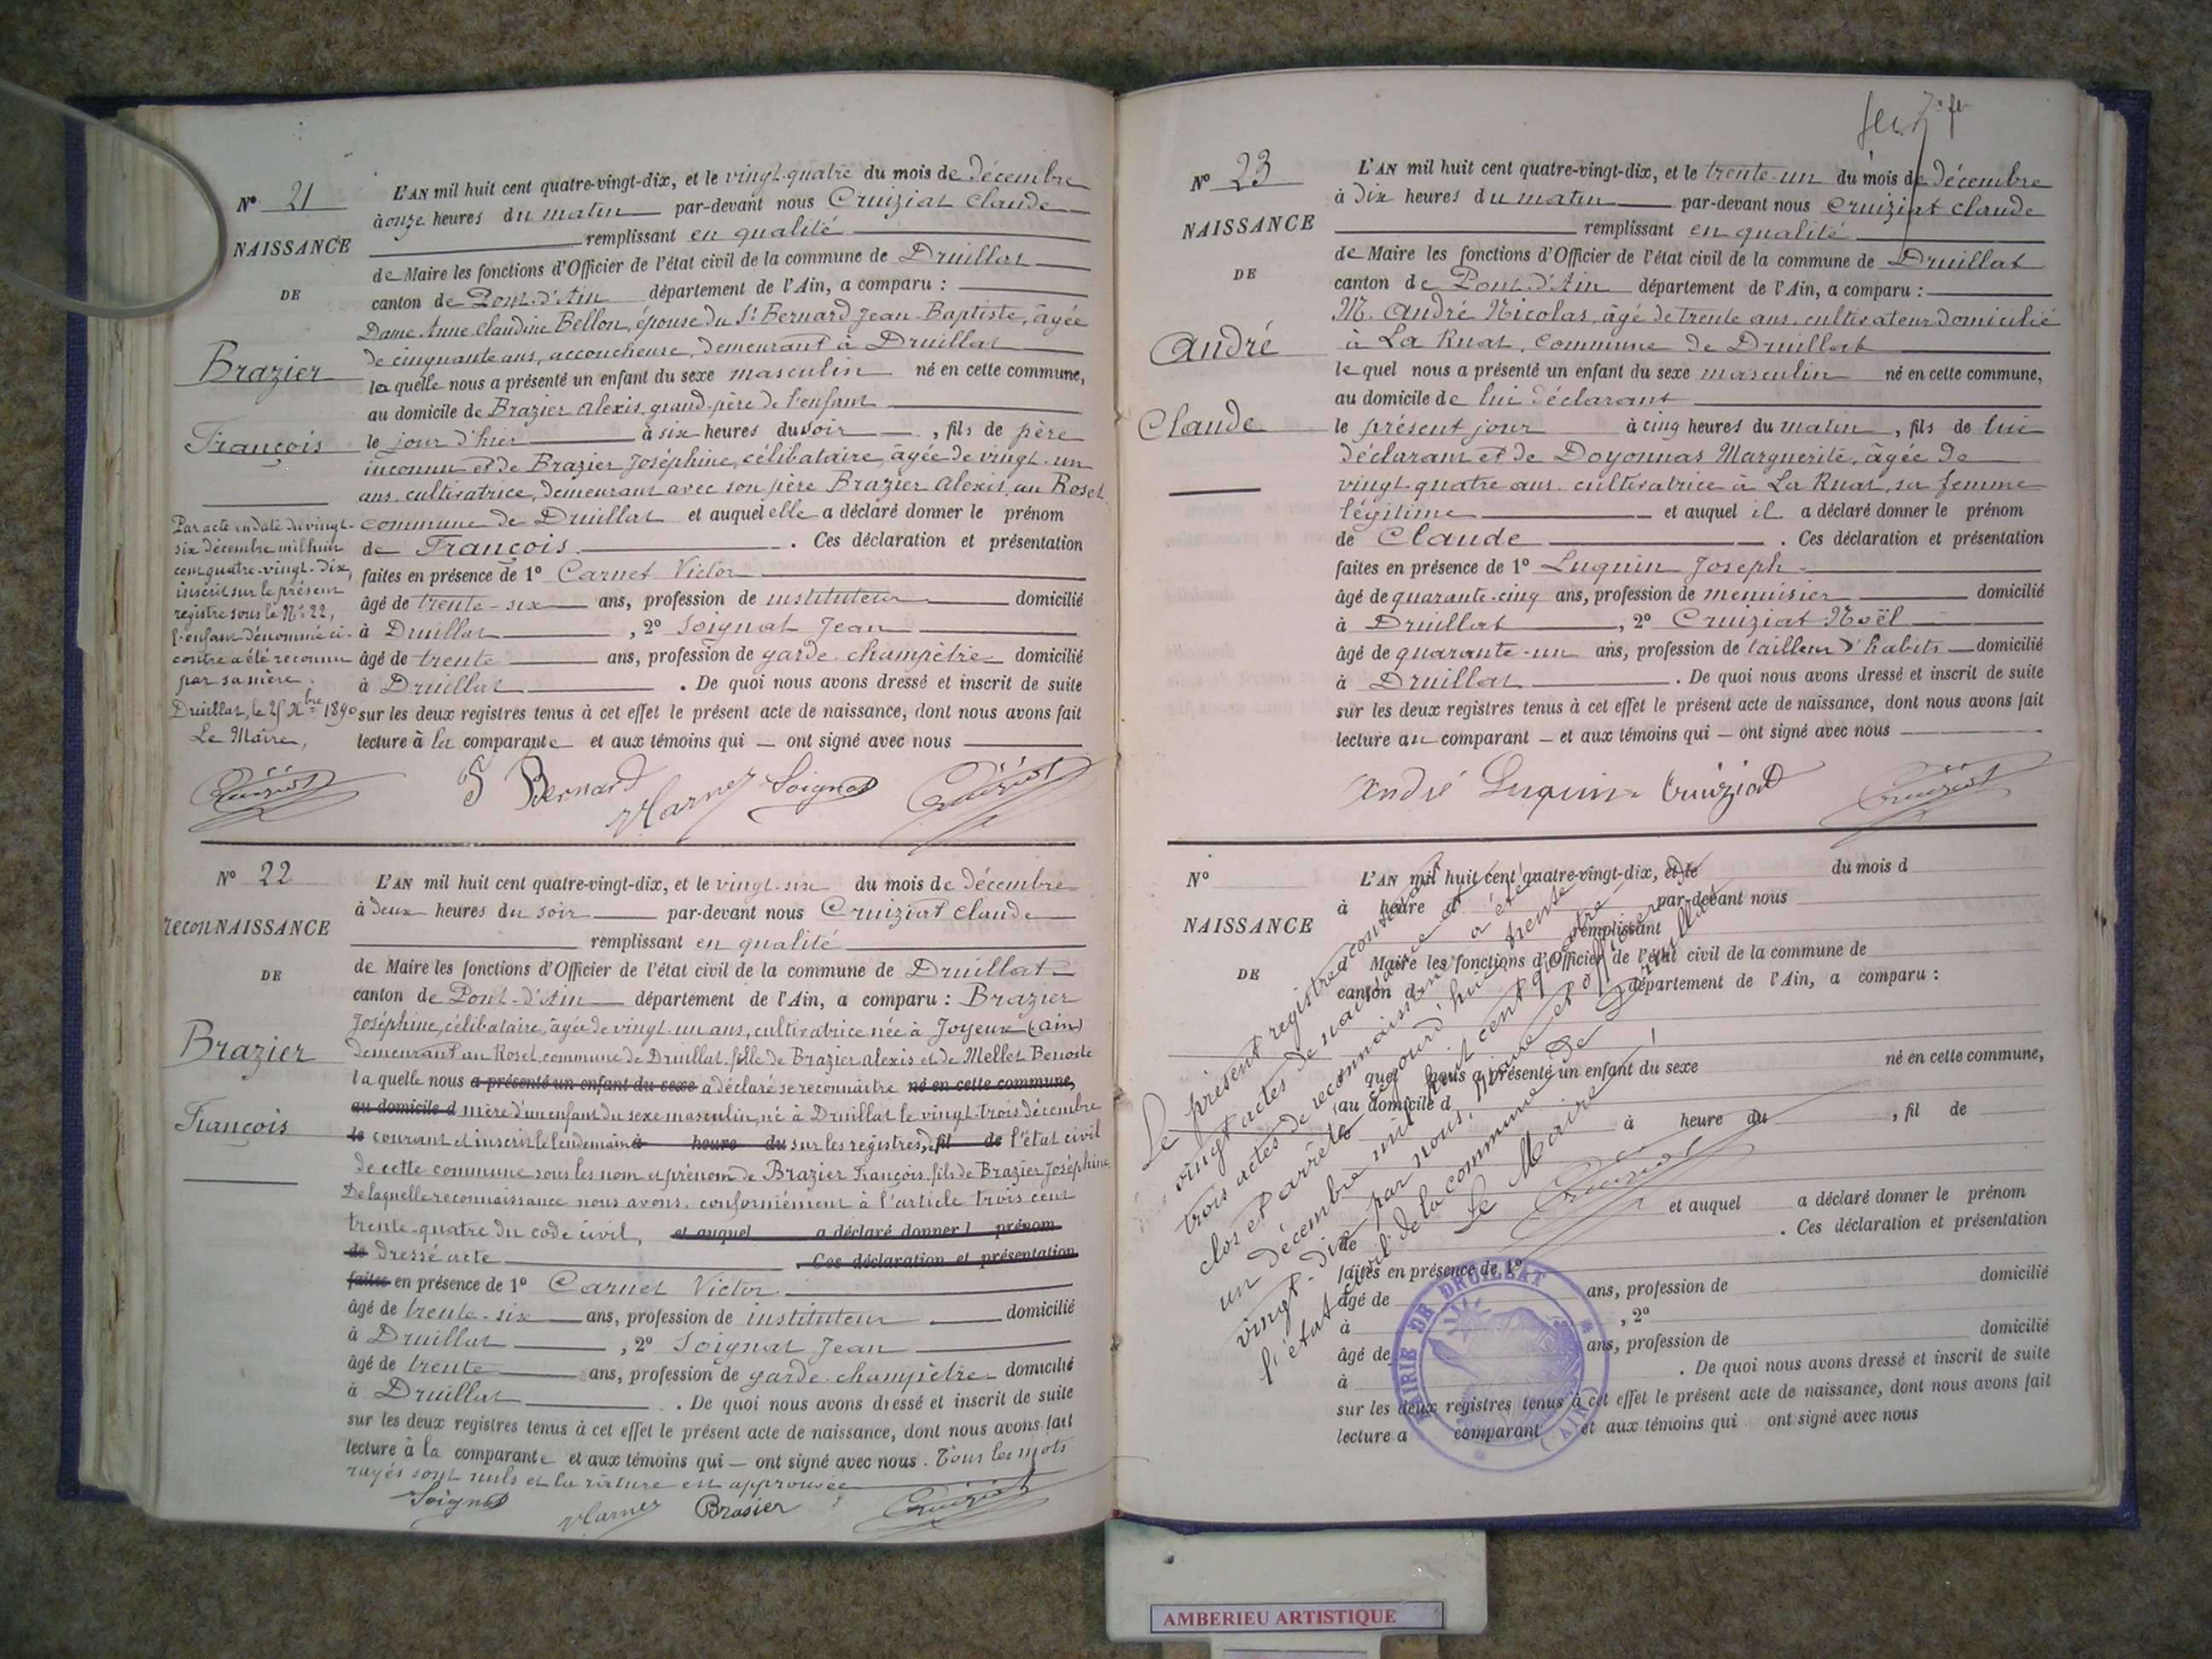 N° 21
NAISSANCE
DE
Brazier
François
L'AN mil huit cent quatre-vingt-dix, et le vingt-quatre du mois de décembre
à onze heures du matin par-devant nous Cruiziat Claude
remplissant en qualité
de Maire les fonctions d'Officier de l'état civil de la commune de Druillat
canton de Pont-d'Ain département de l'Ain, a comparu :
Dame Anne Claudine Bellon, épouse du Sr Bernard Jean-Baptiste, âgée
de cinquante ans, accoucheuse, demeurant à Druillat
laquelle nous a présenté un enfant du sexe masculin né en cette commune,
au domicile de Brazier Alexis, grand-père de l'enfant
le jour d'hier à six heures du soir, fils de père
inconnu et de Brazier Joséphine, célibataire, âgée de vingt-un
ans, cultivatrice, demeurant avec son père Brazier Alexis, au Roset
commune de Druillat et auquel elle a déclaré donner le prénom
de François. Ces déclaration et présentation
faites en présence de 1° Carnet Victor
âgé de trente-six ans, profession de instituteur domicilié
à Druillat, 2° Soignat Jean
âgé de trente ans, profession de garde-champêtre domicilié
à Druillat. De quoi nous avons dressé et inscrit de suite
sur les deux registres tenus à cet effet le présent acte de naissance, dont nous avons fait
lecture à la comparante et aux témoins qui — ont signé avec nous
Par acte en date du vingt-
six décembre mil huit
cent quatre-vingt-dix,
inscrit sur le présent
registre sous le N° 22,
l'enfant dénommé ci-
contre a été reconnu
par sa mère.
Druillat, le 25 Xbre 1890
Le Maire,
Cruiziat
Bernard
VCarnet Soignat Cruiziat
N° 22
reconNAISSANCE
DE
Brazier
François
L'AN mil huit cent quatre-vingt-dix, et le vingt-six du mois de décembre
à deux heures du soir par-devant nous Cruiziat Claude
remplissant en qualité
de Maire les fonctions d'Officier de l'état civil de la commune de Druillat
canton de Pont-d'Ain département de l'Ain, a comparu : Brazier
Joséphine, célibataire, âgée de vingt-un ans, cultivatrice née à Joyeux (Ain)
demeurant au Roset, commune de Druillat, fille de Brazier Alexis et de Mellet Benoite
laquelle nous a présenté un enfant du sexe a déclaré se reconnaître né en cette commune,
au domicile d mère d'un enfant du sexe masculin, né à Druillat le vingt-trois décembre
le courant et inscrit le lendemain à heure du sur les registres, d fil de l'état civil
de cette commune sous les nom et prénom de Brazier François, fils de Brazier Joséphine.
De laquelle reconnaissance nous avons, conformément à l'article trois cent
trente-quatre du code civil, et auquel a déclaré donner l prénom
de dressé acte. Ces déclaration et présentation
faites en présence de 1° Carnet Victor
âgé de trente-six ans, profession de instituteur domicilié
à Druillat, 2° Soignat Jean
âgé de trente ans, profession de garde-champêtre domicilié
à Druillat. De quoi nous avons dressé et inscrit de suite
sur les deux registres tenus à cet effet le présent acte de naissance, dont nous avons fait
lecture à la comparante et aux témoins qui — ont signé avec nous. Tous les mots
rayés sont nuls et la rature est approuvée
Soignat VCarnet Brasier Cruiziat
N° 23
NAISSANCE
DE
André
Claude
L'AN mil huit cent quatre-vingt-dix, et le trente-un du mois de décembre
à dix heures du matin par-devant nous Cruiziat Claude
remplissant en qualité
de Maire les fonctions d'Officier de l'état civil de la commune de Druillat
canton de Pont-d'Ain département de l'Ain, a comparu :
M. André Nicolas, âgé de trente ans, cultivateur domicilié
à La Ruat, commune de Druillat
lequel nous a présenté un enfant du sexe masculin né en cette commune,
au domicile de lui déclarant
le présent jour à cinq heures du matin, fils de lui
déclarant et de Doyonnas Marguerite, âgée de
vingt-quatre ans, cultivatrice à La Ruat, sa femme
légitime et auquel il a déclaré donner le prénom
de Claude. Ces déclaration et présentation
faites en présence de 1° Luquin Joseph
âgé de quarante-cinq ans, profession de menuisier domicilié
à Druillat, 2° Cruiziat Noël
âgé de quarante-un ans, profession de tailleur d'habits domicilié
à Druillat. De quoi nous avons dressé et inscrit de suite
sur les deux registres tenus à cet effet le présent acte de naissance, dont nous avons fait
lecture au comparant — et aux témoins qui — ont signé avec nous
André Luquin Cruiziat Cruiziat
N°
NAISSANCE
DE
L'AN mil huit cent quatre-vingt-dix, et le du mois d
à heure d par-devant nous
remplissant
d Maire les fonctions d'Officier de l'état civil de la commune de
canton d département de l'Ain, a comparu :
quel nous a présenté un enfant du sexe né en cette commune,
au domicile d
à heure du, fil de
et auquel a déclaré donner le prénom
de. Ces déclaration et présentation
faites en présence de 1°
âgé de ans, profession de domicilié
à, 2°
âgé de ans, profession de domicilié
à. De quoi nous avons dressé et inscrit de suite
sur les deux registres tenus à cet effet le présent acte de naissance, dont nous avons fait
lecture a comparant et aux témoins qui ont signé avec nous
Le présent registre contenant
vingt actes de naissance et
trois actes de reconnaissance a été
clos et arrêté cejourd'hui trente-
un décembre mil huit cent quatre-
vingt-dix par nous, Maire et officier de
l'état civil de la commune de Druillat
Le Maire
Cruiziat
MAIRIE DE DRUILLAT
(AIN)
AMBERIEU ARTISTIQUE